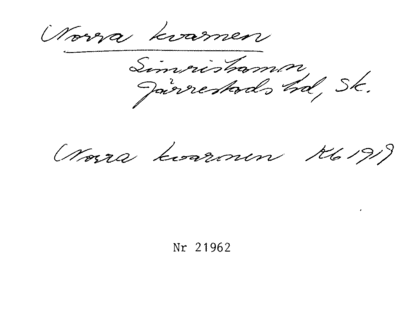 Norra kvarnen
Simrishamn
Järrestads hd, Sk.
Norra kvarnen Kb 1919
Nr 21962